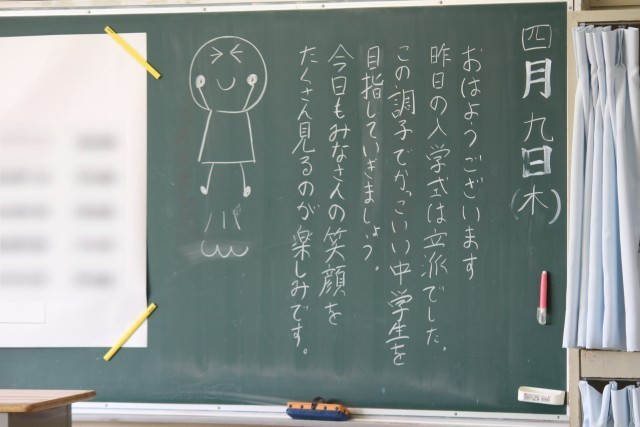 四月九日(木)
おはようございます
昨日の入学式は立派でした。
この調子でかっこいい中学生を
目指していきましょう。
今日もみなさんの笑顔を
たくさん見るのが楽しみです。